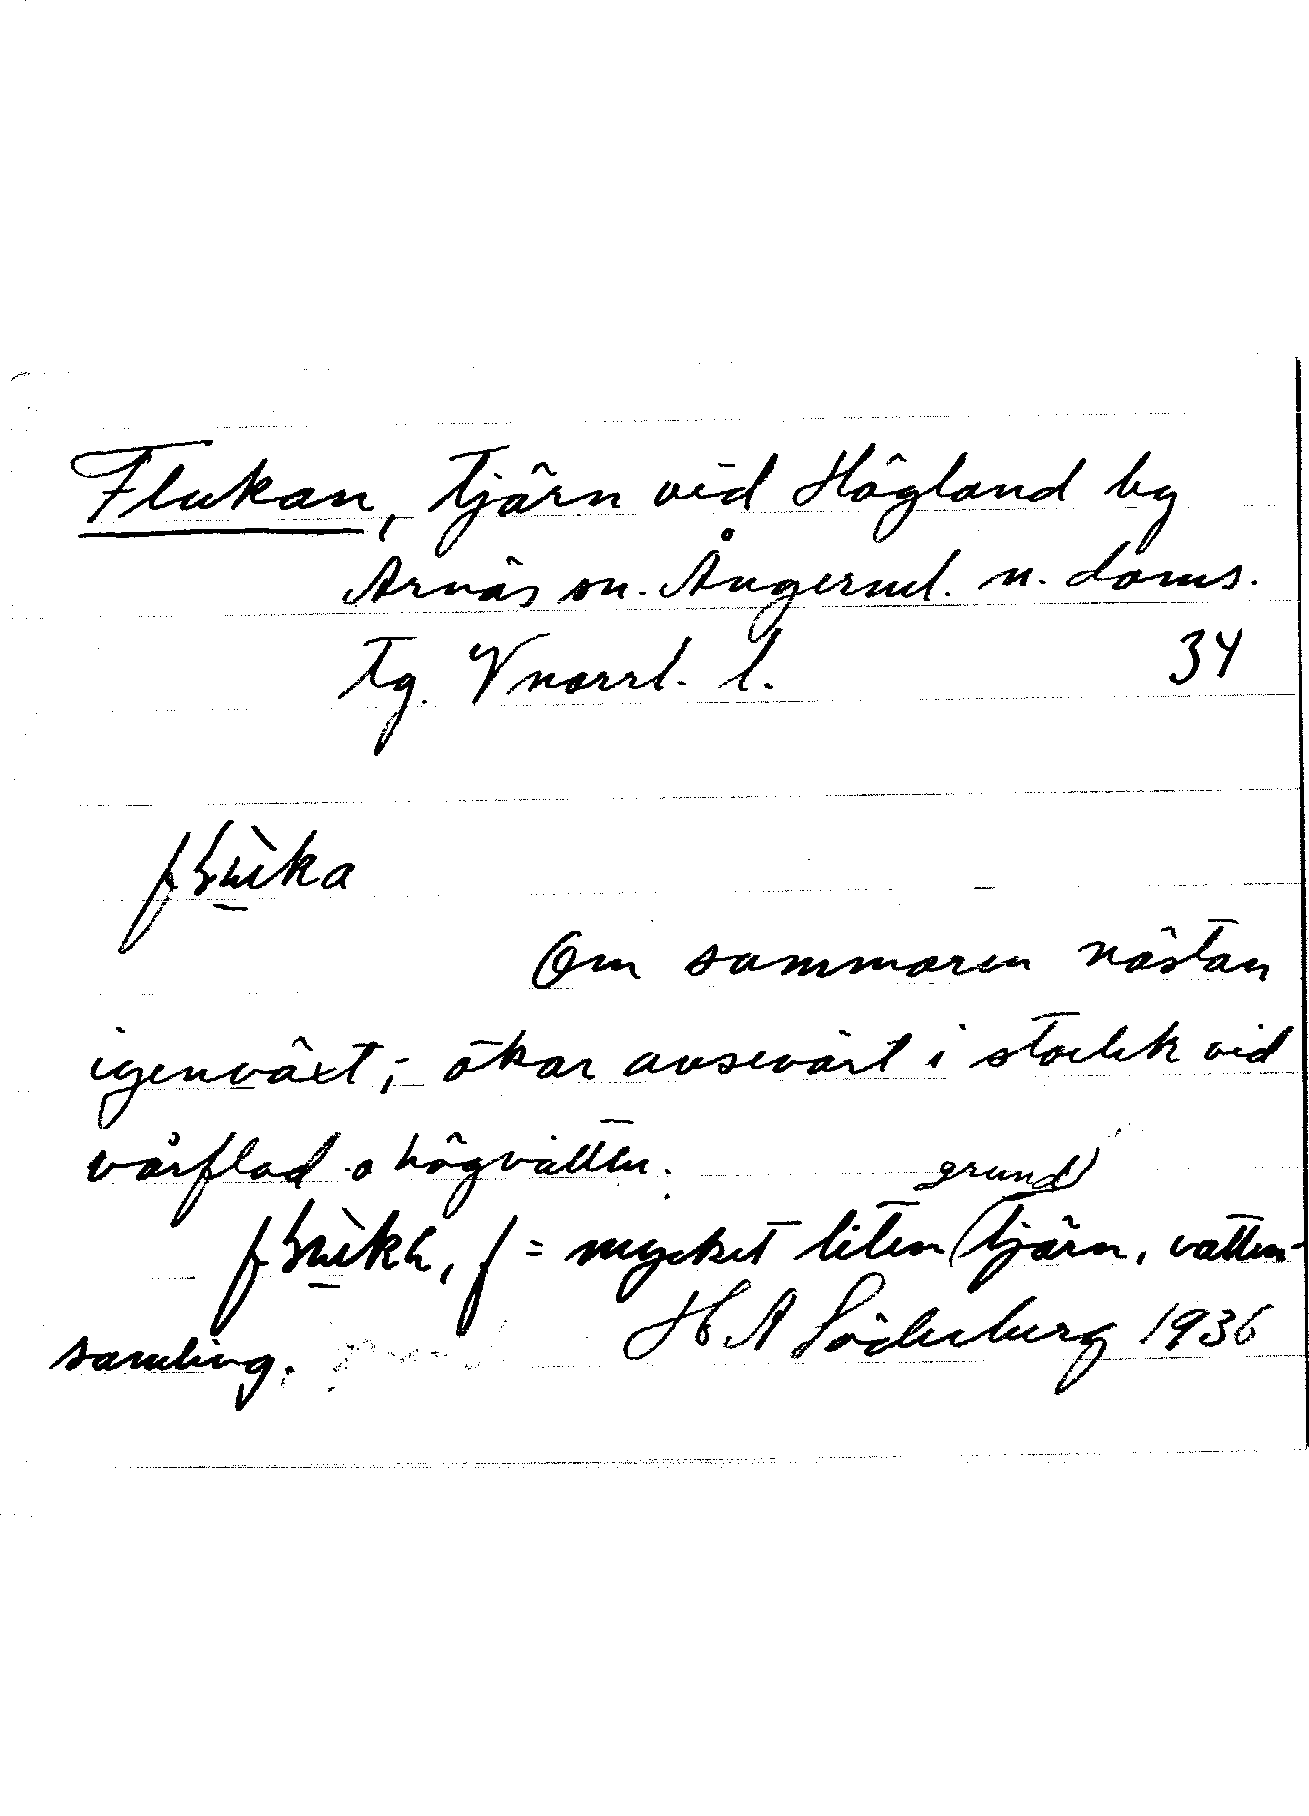 Flukan, tjärn vid Högland by
Arnäs sn. Ångerml. n. doms.
tg. Vnorrl. l. 34
Om sommaren nästan
igenväxt; ökar avsevärt i storlek vid
vårflod o högvatten.
grund
f = mycket liten (tjärn, vatten-
samling. H A Söderberg 1936